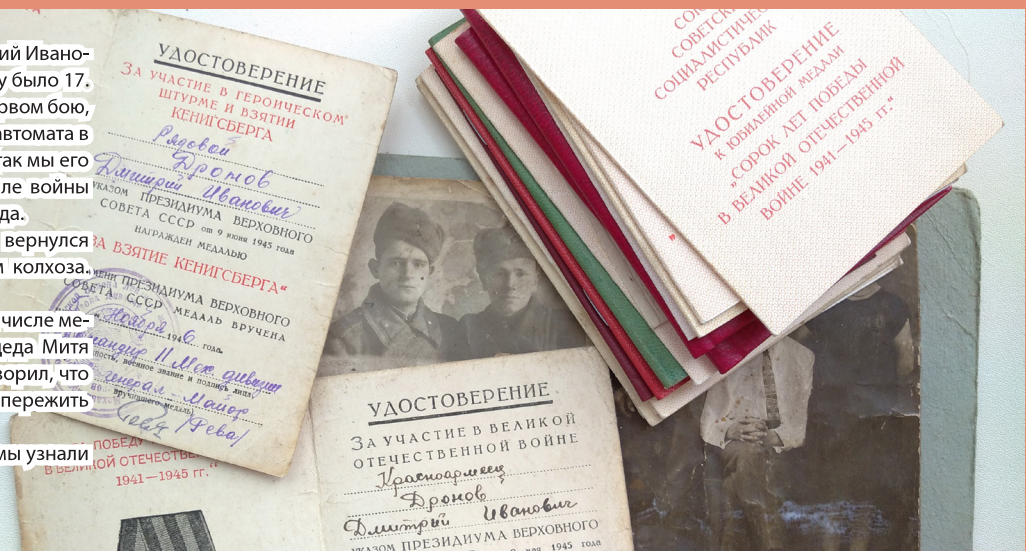 ий Ивано-
у было 17.
рвом бою,
автомата в
так мы его
ле войны
да.
вернулся
м колхоза.
числе ме-
деда Митя
ворил, что
пережить
мы узнали
УДОСТОВЕРЕНИЕ
ЗА УЧАСТИЕ В ГЕРОИЧЕСКОМ
ШТУРМЕ И ВЗЯТИИ
КЕНИГСБЕРГА
Рядовой
Дронов
Дмитрий Иванович
УКАЗОМ ПРЕЗИДИУМА ВЕРХОВНОГО
СОВЕТА СССР от 9 июня 1945 года
НАГРАЖДЕН МЕДАЛЬЮ
ЗА ВЗЯТИЕ КЕНИГСБЕРГА“
ИМЕНИ ПРЕЗИДИУМА ВЕРХОВНОГО
СОВЕТА СССР МЕДАЛЬ ВРУЧЕНА
Ноября 1946 года.
Командир II Мех. дивизии
ность, военное звание и подпись лица,
генерал-майор
вручившего медаль)
/Рева/
ПОБЕДУ
В ВЕЛИКОЙ ОТЕЧЕСТВЕН
1941—1945 гг.“
УДОСТОВЕРЕНИЕ
ЗА УЧАСТИЕ В ВЕЛИКОЙ
ОТЕЧЕСТВЕННОЙ ВОЙНЕ
Красноармеец
Дронов
Дмитрий Иванович
УКАЗОМ ПРЕЗИДИУМА ВЕРХОВНОГО
мая 1945 года
СОЮ
СОВЕТСКИ
СОЦИАЛИСТИЧЕС
РЕСПУБЛИК
УДОСТОВЕРЕНИЕ
К ЮБИЛЕЙНОЙ МЕДАЛИ
„СОРОК ЛЕТ ПОБЕДЫ
В ВЕЛИКОЙ ОТЕЧЕСТВЕННОЙ
ВОЙНЕ 1941—1945 гг.“